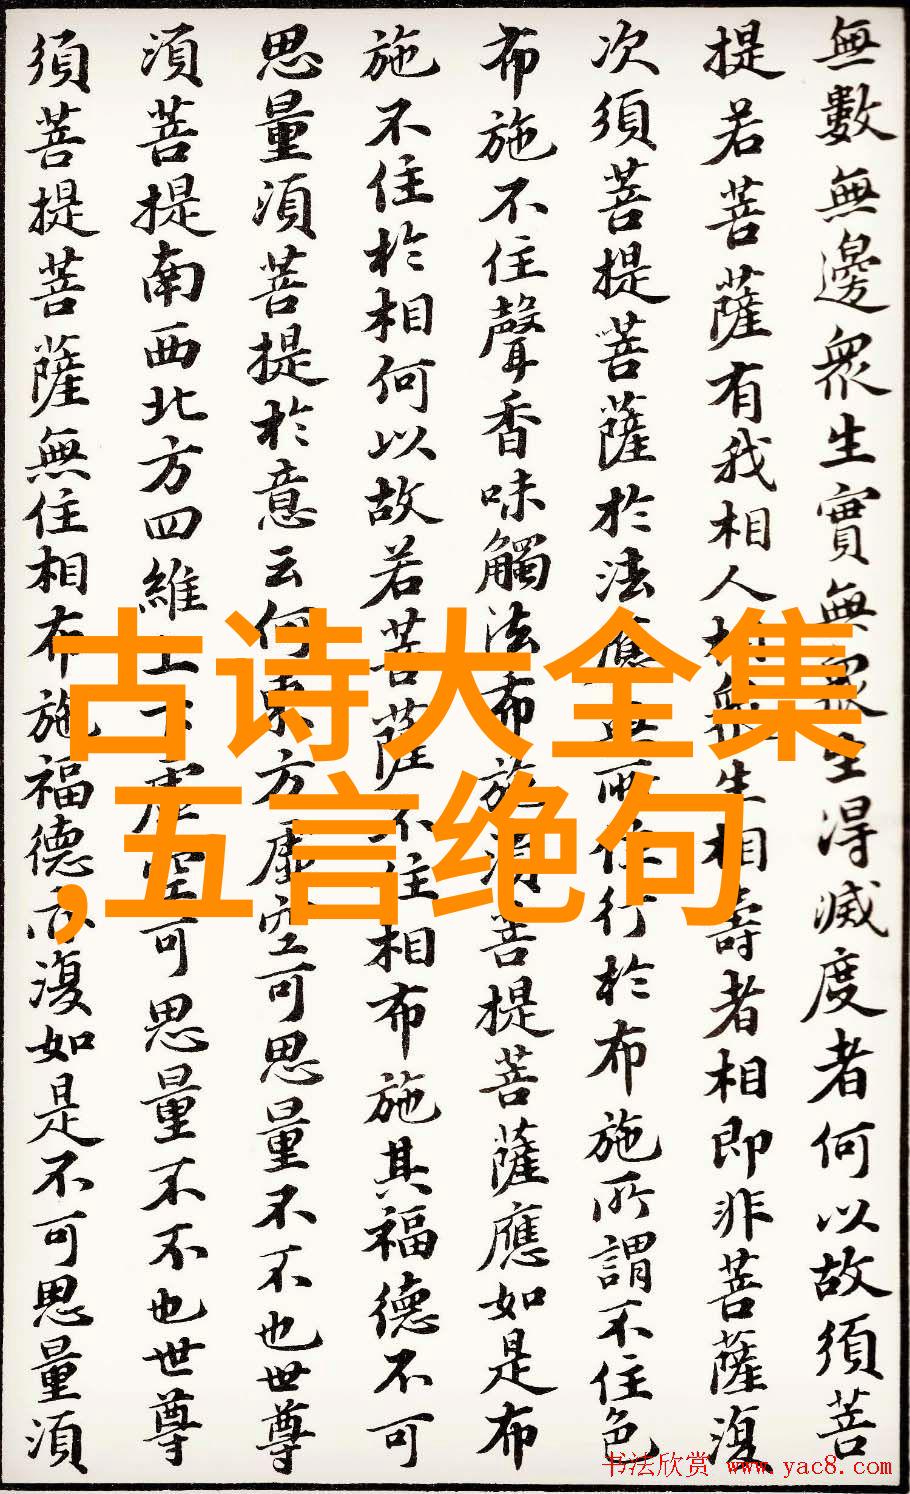 無數無邊眾生實無眾生得滅度者何以故須菩
提若菩薩有我相人相眾生相壽者相即非菩薩復
次須菩提菩薩於法應無所住行於布施所謂不住色
布施不住聲香味觸法布施須菩提菩薩應如是布
施不住於相何以故若菩薩不住相布施其福德不可
思量須菩提於意云何東方虛空可思量不不也世尊
須菩提南西北方四維上下虛空可思量不不也世尊
須菩提菩薩無住相布施福德亦復如是不可思量須
古诗大全集
,五言绝句
书法欣赏 www.yac8.com